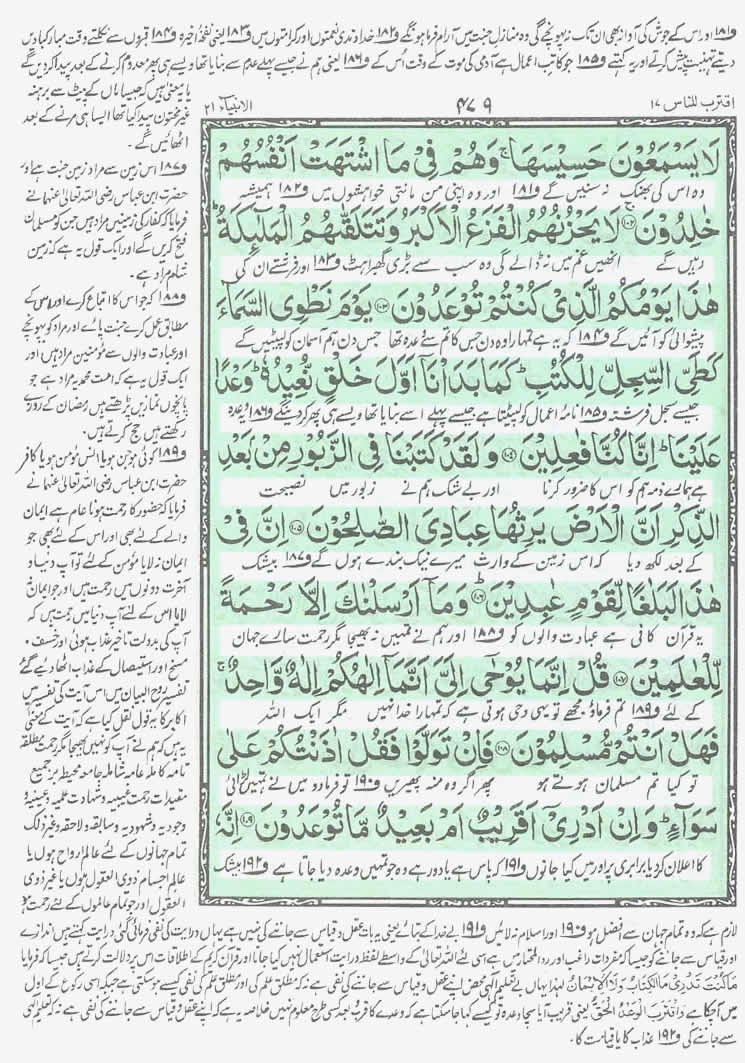 و۱۸۱ اور اس کے جوش کی آواز بھی ان تک نہ پہونچے گی وہ منازلِ جنت میں آرام فرما ہونگے و۱۸۲ خداوندی نعمتوں اور کرامتوں میں و۱۸۳ یعنی نفخۂ اخیرہ و۱۸۴ قبروں سے نکلتے وقت مبارکبادیں
دیتے تہنیت پیش کرتے اور یہ کہتے و۱۸۵ جو کاتبِ اعمال ہے آدمی کی موت کے وقت اُس کے و۱۸۶ یعنی ہم نے جیسے پہلے عدم سے بنایا تھا ویسے ہی پھر معدوم کرنے کے بعد پیدا کردیں گے
اقترب للناس ۱۷
۴۷۹
الانبیاء ۲۱
لَا يَسْمَعُوْنَ حَسِيْسَهَا ۚ وَهُمْ فِيْ مَا اشْتَهَتْ اَنْفُسُهُمْ
وہ اس کی بھنک نہ سنیں گے و۱۸۱ اور وہ اپنی من مانتی خواہشوں میں و۱۸۲ ہمیشہ
خٰلِدُوْنَ ۝۱۰۲ لَا يَحْزُنُهُمُ الْفَزَعُ الْاَكْبَرُ وَتَتَلَقّٰىهُمُ الْمَلٰٓئِكَةُ ؕ
رہیں گے انھیں غم میں نہ ڈالے گی وہ سب سے بڑی گھبراہٹ و۱۸۳ اور فرشتے ان کی
هٰذَا يَوْمُكُمُ الَّذِيْ كُنْتُمْ تُوْعَدُوْنَ ۝۱۰۳ يَوْمَ نَطْوِي السَّمَآءَ
پیشوائی کو آئیں گے و۱۸۴ کہ یہ ہے تمہارا وہ دن جس کا تم سے وعدہ تھا جس دن ہم آسمان کو لپیٹیں گے
كَطَيِّ السِّجِلِّ لِلْكُتُبِ ؕ كَمَا بَدَاْنَآ اَوَّلَ خَلْقٍ نُّعِيْدُهٗ ؕ وَعْدًا
جیسے سجل فرشتہ و۱۸۵ نامۂ اعمال کو لپیٹتا ہے جیسے پہلے اسے بنایا تھا ویسے ہی پھر کردینگے و۱۸۶ یہ وعدہ
عَلَيْنَا ؕ اِنَّا كُنَّا فٰعِلِيْنَ ۝۱۰۴ وَلَقَدْ كَتَبْنَا فِي الزَّبُوْرِ مِنْۢ بَعْدِ
ہے ہمارے ذمہ ہم کو اس کا ضرور کرنا اور بے شک ہم نے زبور میں نصیحت
الذِّكْرِ اَنَّ الْاَرْضَ يَرِثُهَا عِبَادِيَ الصّٰلِحُوْنَ ۝۱۰۵ اِنَّ فِيْ
کے بعد لکھ دیا کہ اس زمین کے وارث میرے نیک بندے ہوں گے و۱۸۷ بیشک
هٰذَا لَبَلٰغًا لِّقَوْمٍ عٰبِدِيْنَ ۝۱۰۶ وَمَآ اَرْسَلْنٰكَ اِلَّا رَحْمَةً
یہ قرآن کافی ہے عبادت والوں کو و۱۸۸ اور ہم نے تمہیں نہ بھیجا مگر رحمت سارے جہان
لِّلْعٰلَمِيْنَ ۝۱۰۷ قُلْ اِنَّمَا يُوْحٰٓى اِلَيَّ اَنَّمَآ اِلٰهُكُمْ اِلٰهٌ وَّاحِدٌ ۚ
کے لئے و۱۸۹ تم فرماؤ مجھے تو یہی وحی ہوتی ہے کہ تمہارا خدا نہیں مگر ایک اللہ
فَهَلْ اَنْتُمْ مُّسْلِمُوْنَ ۝۱۰۸ فَاِنْ تَوَلَّوْا فَقُلْ اٰذَنْتُكُمْ عَلٰى
تو کیا تم مسلمان ہوتے ہو پھر اگر وہ منہ پھیریں و۱۹۰ تو فرمادو میں نے تمہیں لڑائی
سَوَآءٍ ؕ وَاِنْ اَدْرِيْٓ اَقَرِيْبٌ اَمْ بَعِيْدٌ مَّا تُوْعَدُوْنَ ۝۱۰۹ اِنَّهٗ
کا اعلان کردیا برابری پر اور میں کیا جانوں و۱۹۱ کہ پاس ہے یا دور ہے وہ جو تمہیں وعدہ دیا جاتا ہے و۱۹۲ بیشک
یا یہ معنی ہیں کہ جیسا ماں کے پیٹ سے برہنہ
غیر مختون پیدا کیا تھا ایسا ہی مرنے کے بعد
اٹھائیں گے۔
و۱۸۷ اس زمین سے مراد زمینِ جنت ہے اور
حضرت ابن عباس رضی اللہ تعالیٰ عنہما نے
فرمایا کہ کفار کی زمینیں مراد ہیں جن کو مسلمان
فتح کریں گے اور ایک قول یہ ہے کہ زمین
شام مراد ہے۔
و۱۸۸ کہ جو اس کا اتباع کرے اور اس کے
مطابق عمل کرے جنت پائے اور مراد کو پہونچے
اور عبادت والوں سے مؤمنین مراد ہیں اور
ایک قول یہ ہے کہ امت محمدیہ مراد ہے جو
پانچوں نمازیں پڑھتے ہیں رمضان کے روزے
رکھتے ہیں حج کرتے ہیں۔
و۱۸۹ کوئی ہو جن ہو یا انس مؤمن ہو یا کافر
حضرت ابن عباس رضی اللہ تعالیٰ عنہما نے
فرمایا کہ حضور کا رحمت ہونا عام ہے ایمان
والے کے لئے بھی اور اس کے لئے بھی جو
ایمان نہ لایا مؤمن کے لئے تو آپ دنیا و
آخرت دونوں میں رحمت ہیں اور جو ایمان نہ
لایا اس کے لئے آپ دنیا میں رحمت ہیں کہ
آپ کی بدولت تاخیرِ عذاب ہوئی اور خسف و
مسخ اور استیصال کے عذاب اٹھا دیئے گئے
تفسیر روح البیان میں اس آیت کی تفسیر میں
اکابر کا یہ قول نقل کیا ہے کہ آیت کے معنی
یہ ہیں کہ ہم نے آپ کو نہیں بھیجا مگر رحمت مطلقہ
تامہ کاملہ عامہ شاملہ جامعہ محیط بر جمیع
مقیدات رحمت غیبیہ و شہادت علمیہ و عینیہ و
وجودیہ و شہودیہ و سابقہ و لاحقہ و غیر ذلک
تمام جہانوں کے لئے عالم ارواح ہوں یا
عالم اجسام ذوی العقول ہوں یا غیر ذوی
العقول اور جو تمام عالموں کے لئے رحمت ہو
لازم ہے کہ وہ تمام جہان سے افضل ہو و۱۹۰ اور اسلام نہ لائیں و۱۹۱ بے خدا کے بتائے یعنی یہ بات عقل و قیاس سے جاننے کی نہیں ہے یہاں درایت کی نفی فرمائی گئی درایت کہتے ہیں اندازے
اور قیاس سے جاننے کو جیسا کہ مفردات راغب اور رد المحتار میں ہے اسی لئے اللہ تعالیٰ کے واسطے لفظ درایت استعمال نہیں کیا جاتا اور قرآن کریم کے اطلاقات اس پر دلالت کرتے ہیں جیسا کہ فرمایا
مَا كُنْتَ تَدْرِيْ مَا الْكِتٰبُ وَلَا الْاِيْمَانُ لہٰذا یہاں بے تعلیم الٰہی محض اپنے عقل و قیاس سے جاننے کی نفی ہے نہ کہ مطلق علم کی اور مطلق علم کی نفی کیسے ہوسکتی ہے جبکہ اسی رکوع کے اول
میں آچکا ہے وَاقْتَرَبَ الْوَعْدُ الْحَقُّ یعنی قریب آیا سچا وعدہ تو کیسے کہا جاسکتا ہے کہ وعدے کا قرب و بعد کسی طرح معلوم نہیں خلاصہ یہ ہے کہ اپنے عقل و قیاس سے جاننے کی نفی ہے نہ کہ تعلیم الٰہی
سے جاننے کی و۱۹۲ عذاب کا یا قیامت کا۔